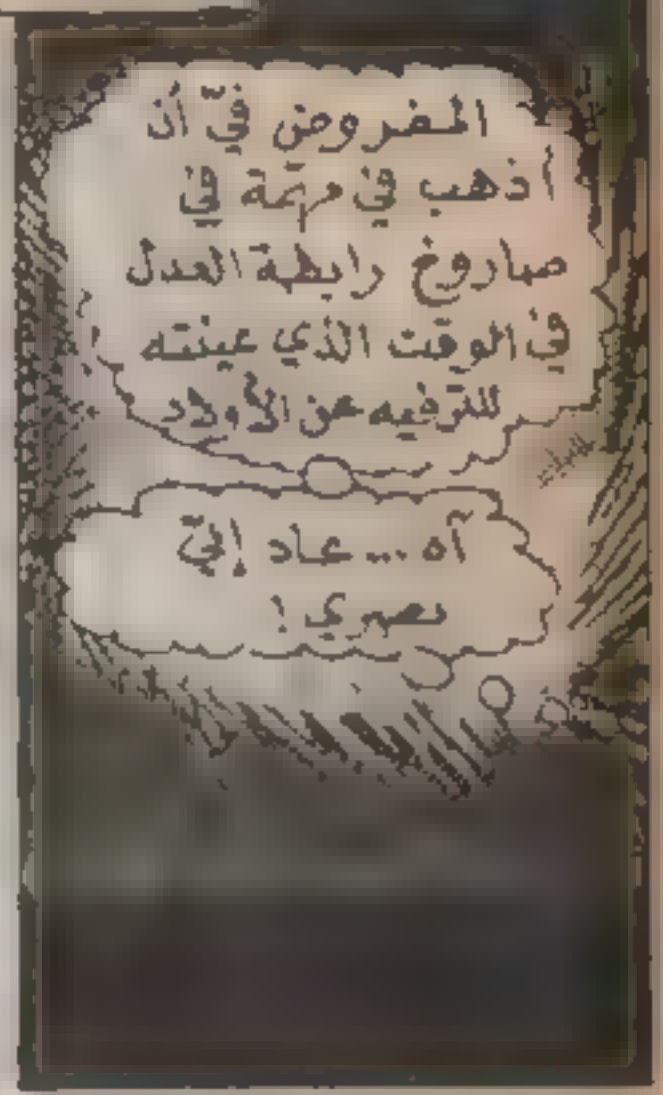 المفروض فيّ أن
أذهب في مهمّة في
صاروخ رابطة العدل
في الوقت الذي عينته
للترفيه عن الأولاد
آه ... عاد إليّ
بصري !